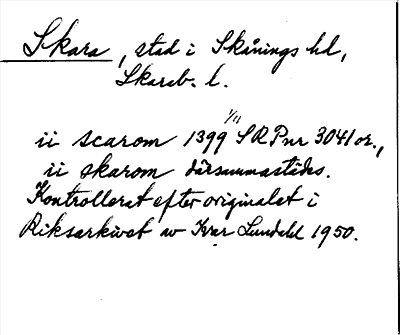 Skara, stad i Skånings hd,
Skarab. l.
ii scarom 1399 1/11 SRP nr 3041 or.,
ii skarom därsammastädes.
Kontrollerat efter originalet i
Riksarkivet av Ivar Lundahl 1950.